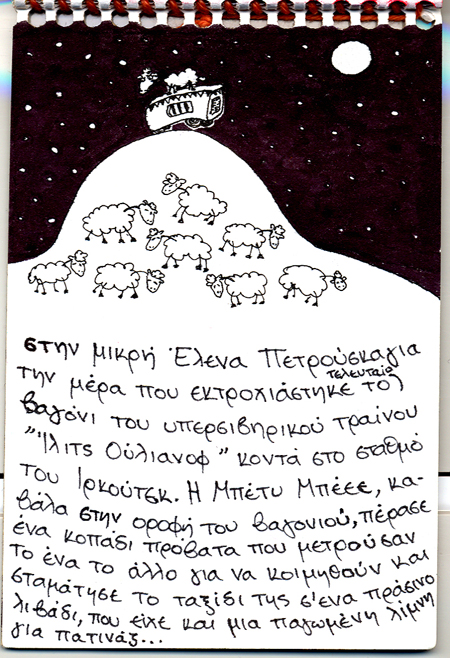 στην μικρή Έλενα Πετρούσκαγια
την μέρα που εκτροχιάστηκε το τελευταίο
βαγόνι του υπερσιβηρικού τραίνου
"Ίλιτς Ούλιανοφ" κοντά στο σταθμό
του Ιρκούτσκ. Η Μπέτυ Μπέεε, κα-
βάλα στην οροφή του βαγονιού, πέρασε
ένα κοπάδι πρόβατα που μετρούσαν
το ένα το άλλο για να κοιμηθούν και
σταμάτησε το ταξίδι της σ'ένα πράσινο
λιβάδι, που είχε και μια παγωμένη λίμνη
για πατινάζ...